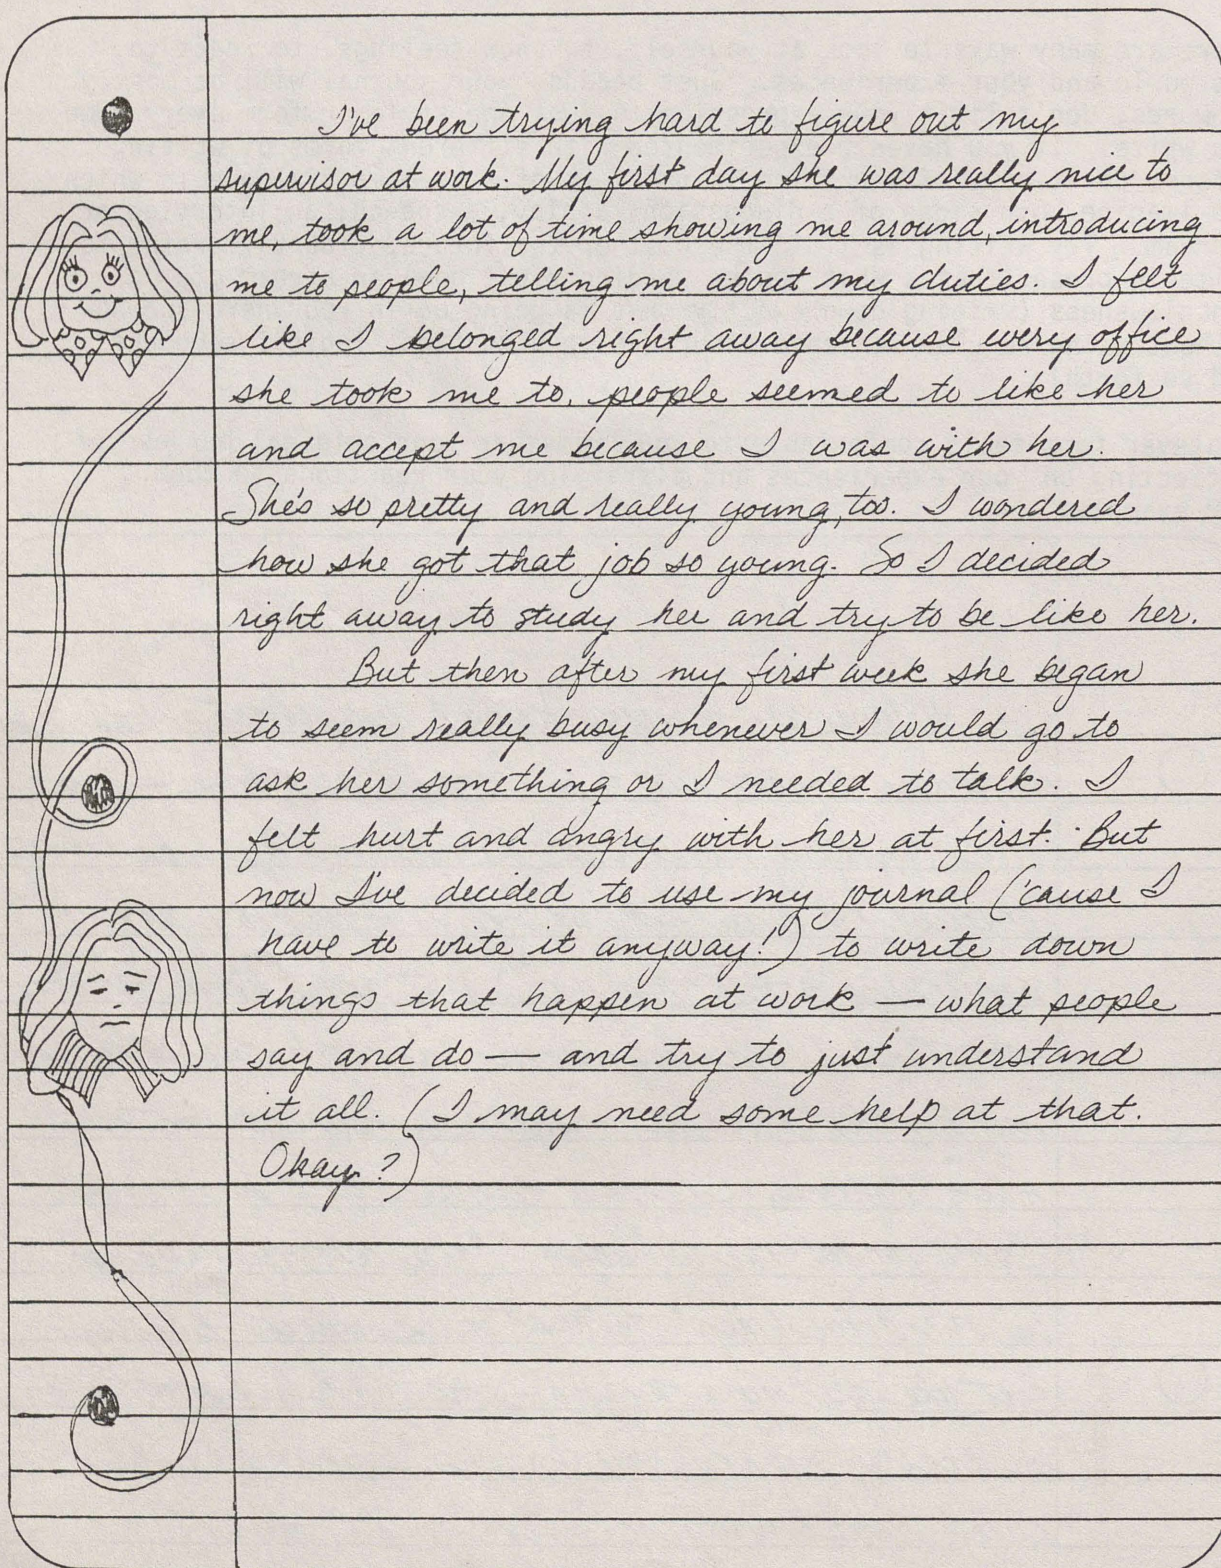 I've been trying hard to figure out my
supervisor at work. My first day she was really nice to
me, took a lot of time showing me around, introducing
me to people, telling me about my duties. I felt
like I belonged right away because every office
she took me to, people seemed to like her
and accept me because I was with her.
She's so pretty and really young, too. I wondered
how she got that job so young. So I decided
right away to study her and try to be like her.
But then after my first week she began
to seem really busy whenever I would go to
ask her something or I needed to talk. I
felt hurt and angry with her at first. But
now I've decided to use my journal ('cause I
have to write it anyway!) to write down
things that happen at work — what people
say and do — and try to just understand
it all. (I may need some help at that.
Okay?)